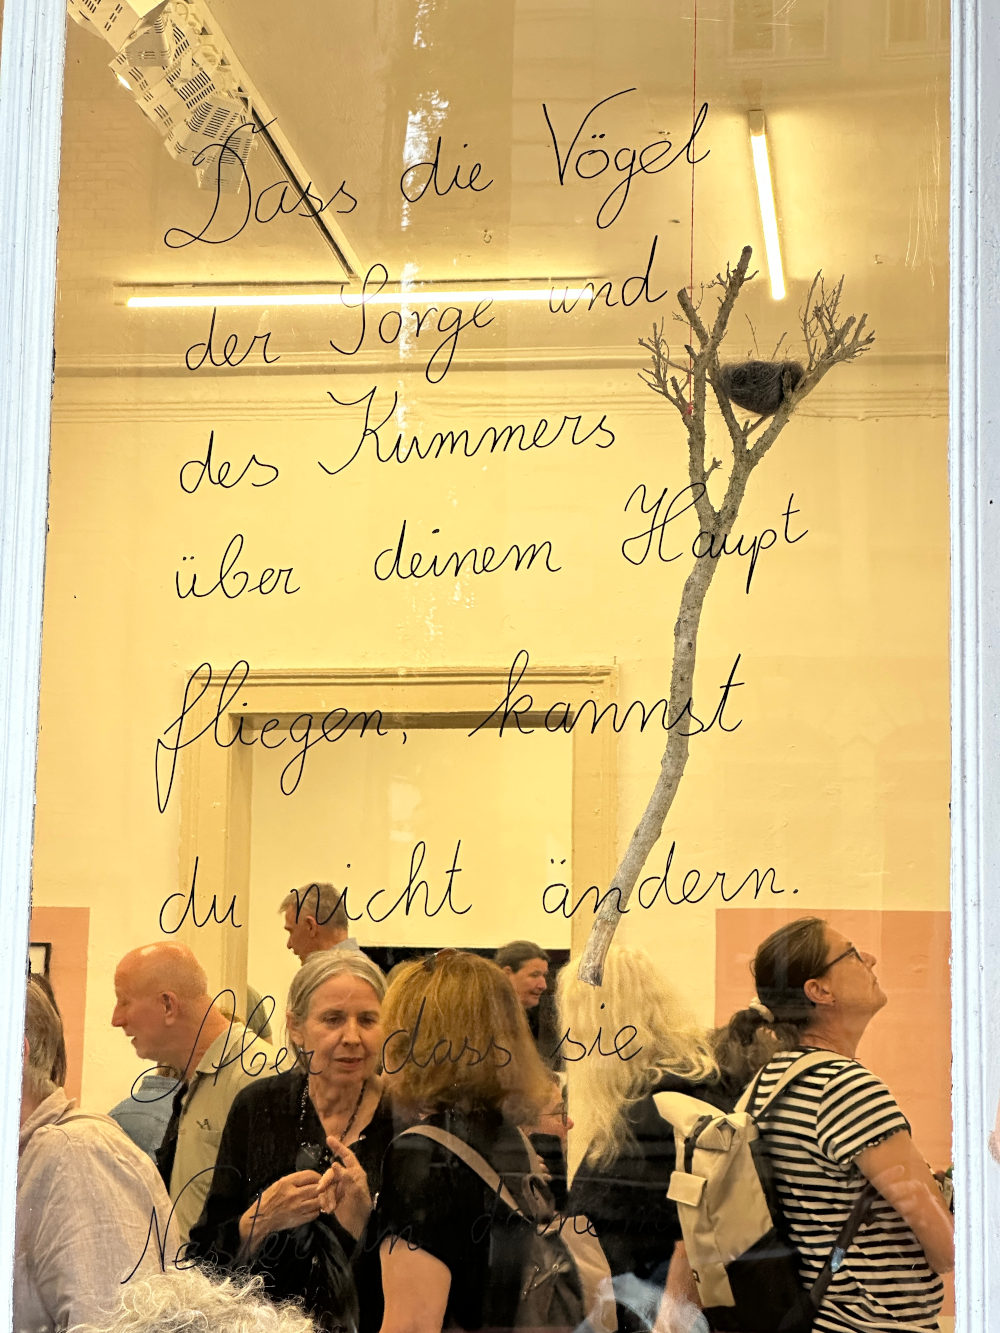 Dass die Vögel
der Sorge und
des Kummers
über deinem Haupt
fliegen, kannst
du nicht ändern.
Aber dass sie
Nester in deinem